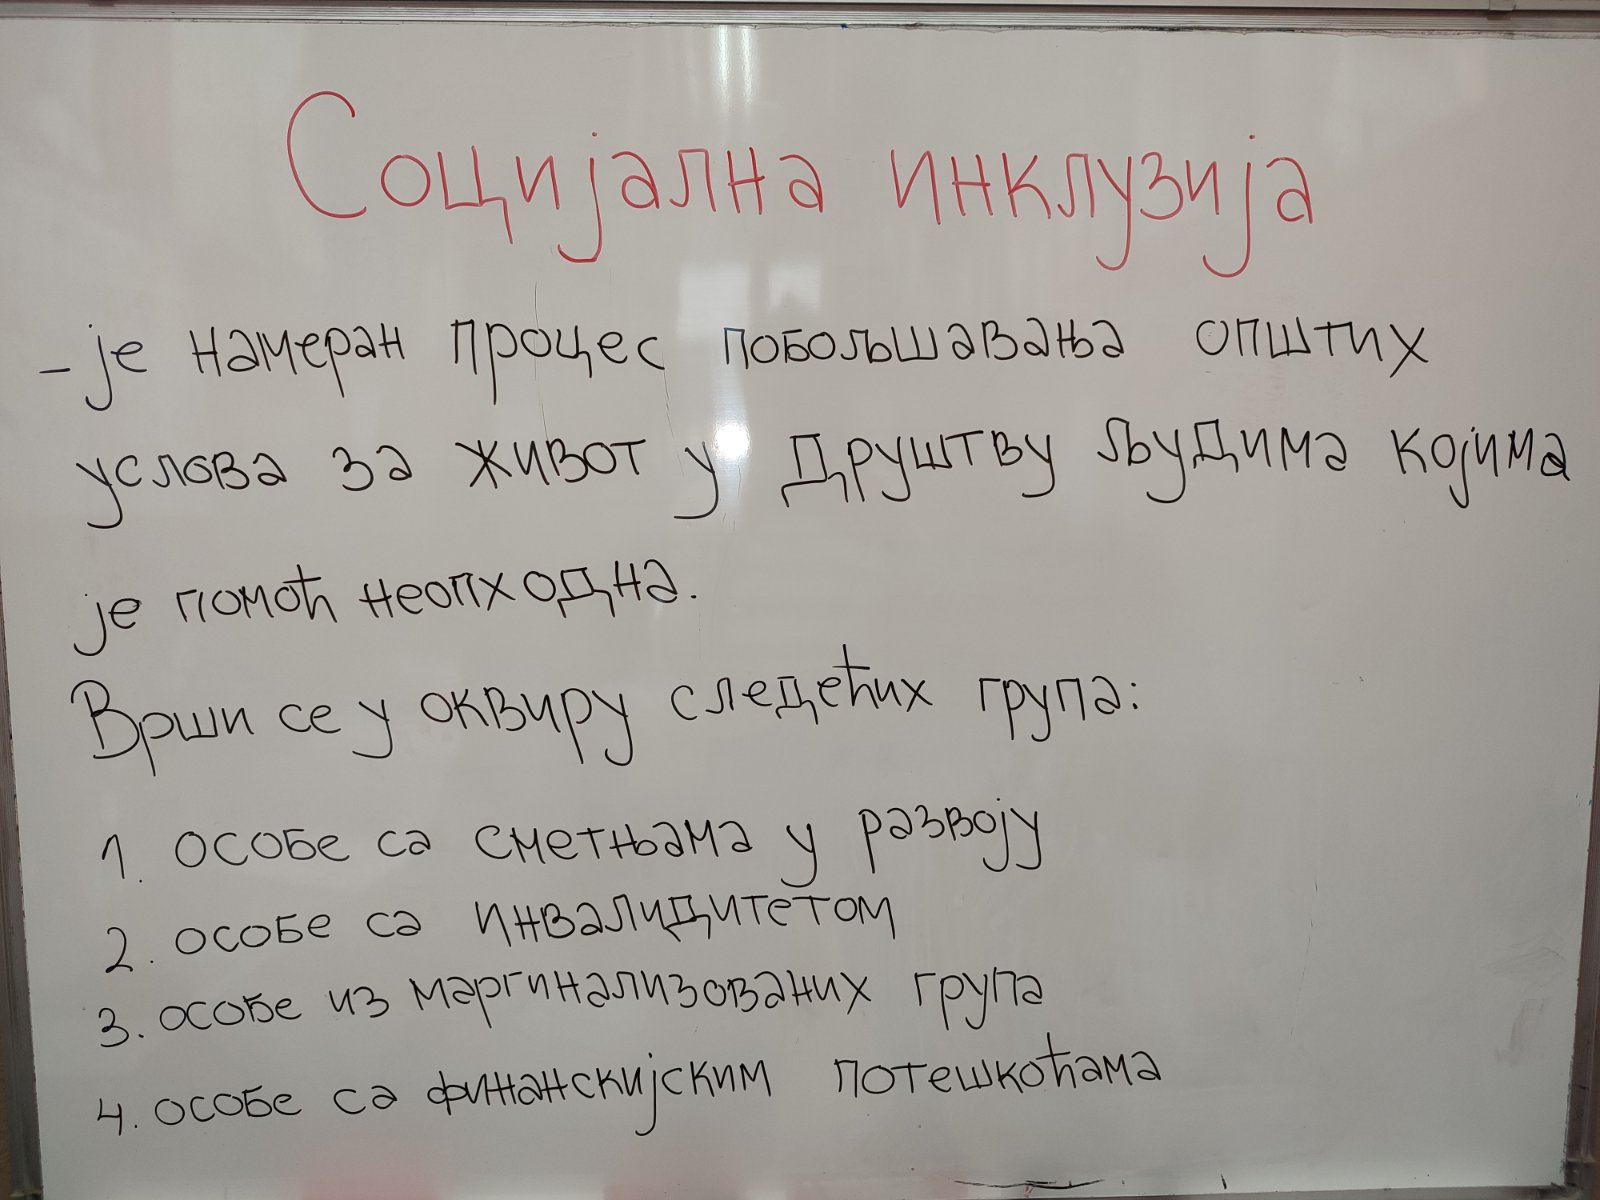 Социјална инклузија
- је намеран процес побољшавања општих
услова за живот у друштву људима којима
је помоћ неопходна.
Врши се у оквиру следећих група:
1. особе са сметњама у развоју
2. особе са инвалидитетом
3. особе из маргинализованих група
4. особе са финанскијским потешкоћама